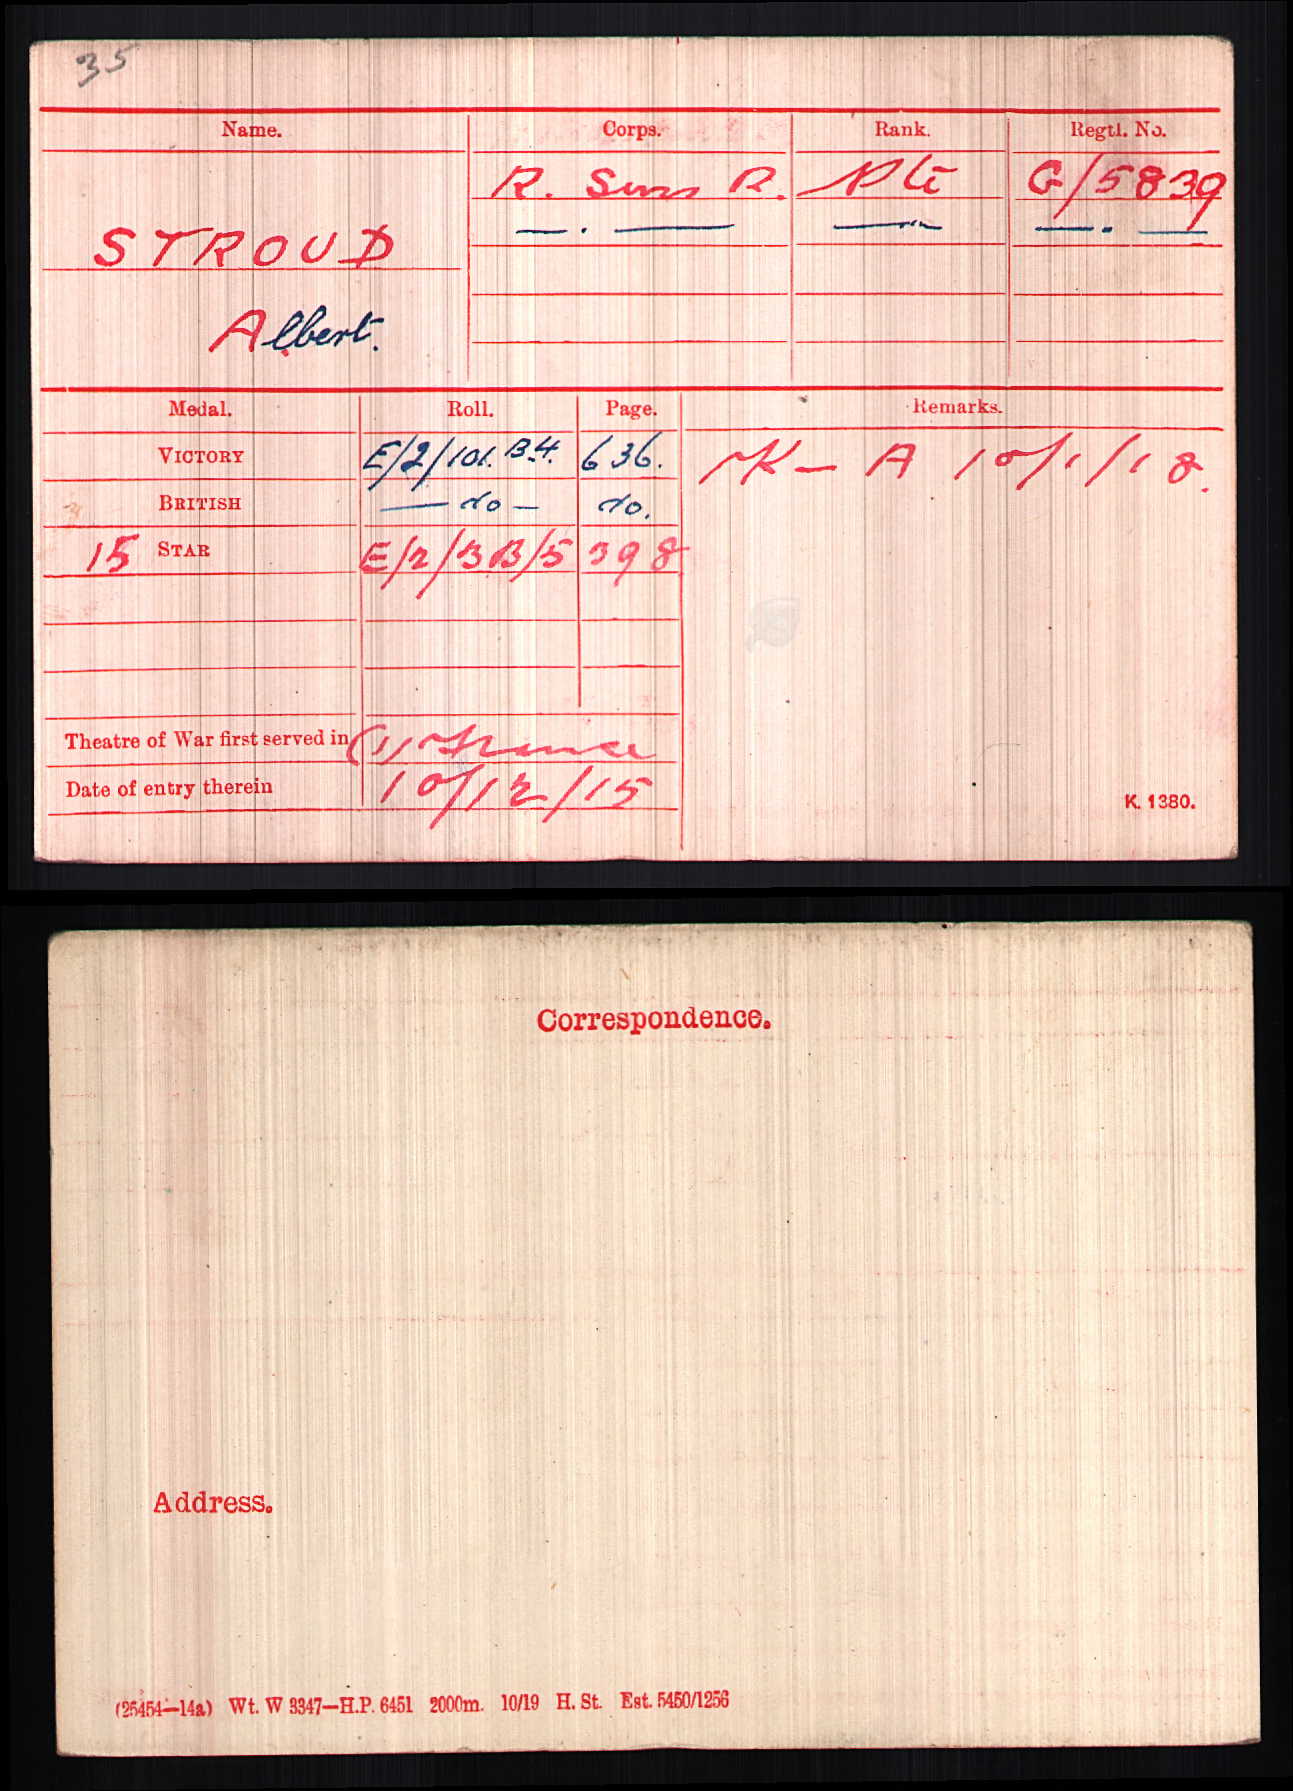 35
Name. Corps. Rank. Regtl. No.
R. Suss R. Pte G/5839
STROUD — . — — — . —
Albert.
Medal. Roll. Page. Remarks.
VICTORY E/2/101. B4. 636. K - A 10/1/18.
BRITISH — do — do.
15 STAR E/2/3B/5 398
Theatre of War first served in (1) France
Date of entry therein 10/12/15
K. 1380.
Correspondence.
Address.
(25454—14a) Wt. W 3347—H.P. 6451 2000m. 10/19 H. St. Est. 5450/1256